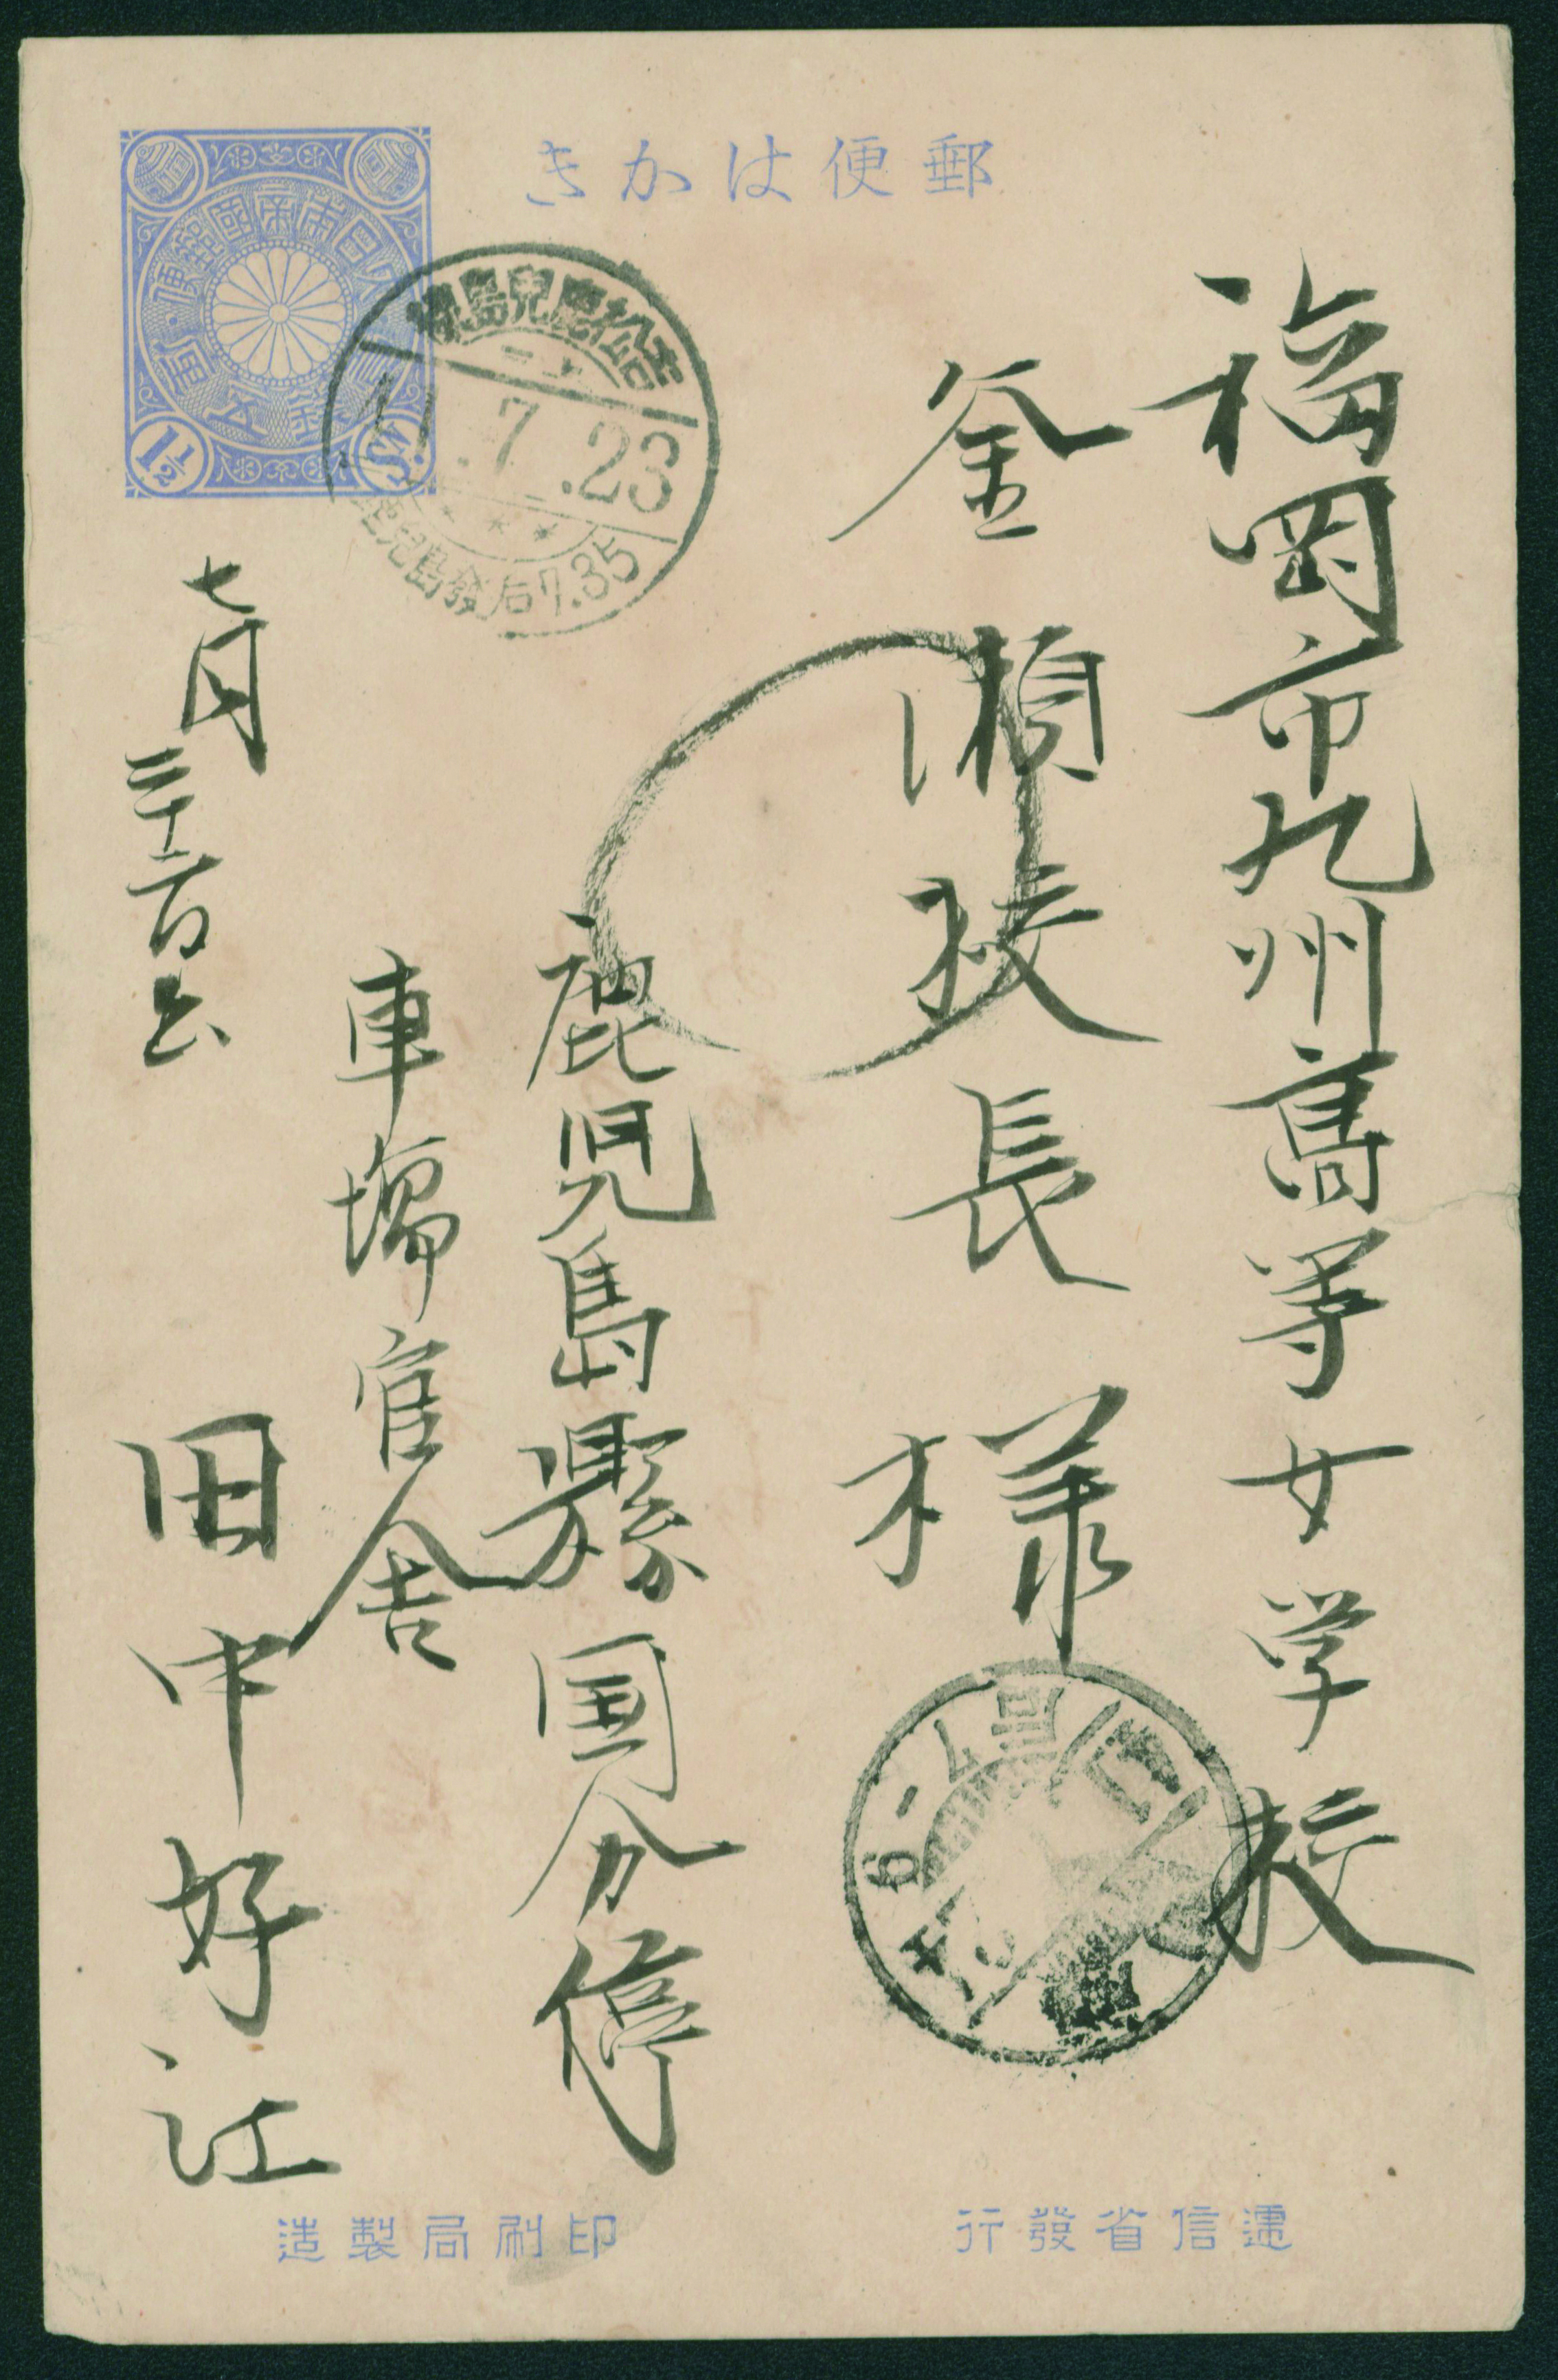 郵便はかき
大日本帝國郵便
壹錢五厘
1½ Sn.
7.23
鹿兒島發后7.35
福岡市九州髙等女学校
釜瀬校長様
鹿児島縣国分停
車場官舎
田中好江
七月二十六日出
遞信省發行
印刷局製造